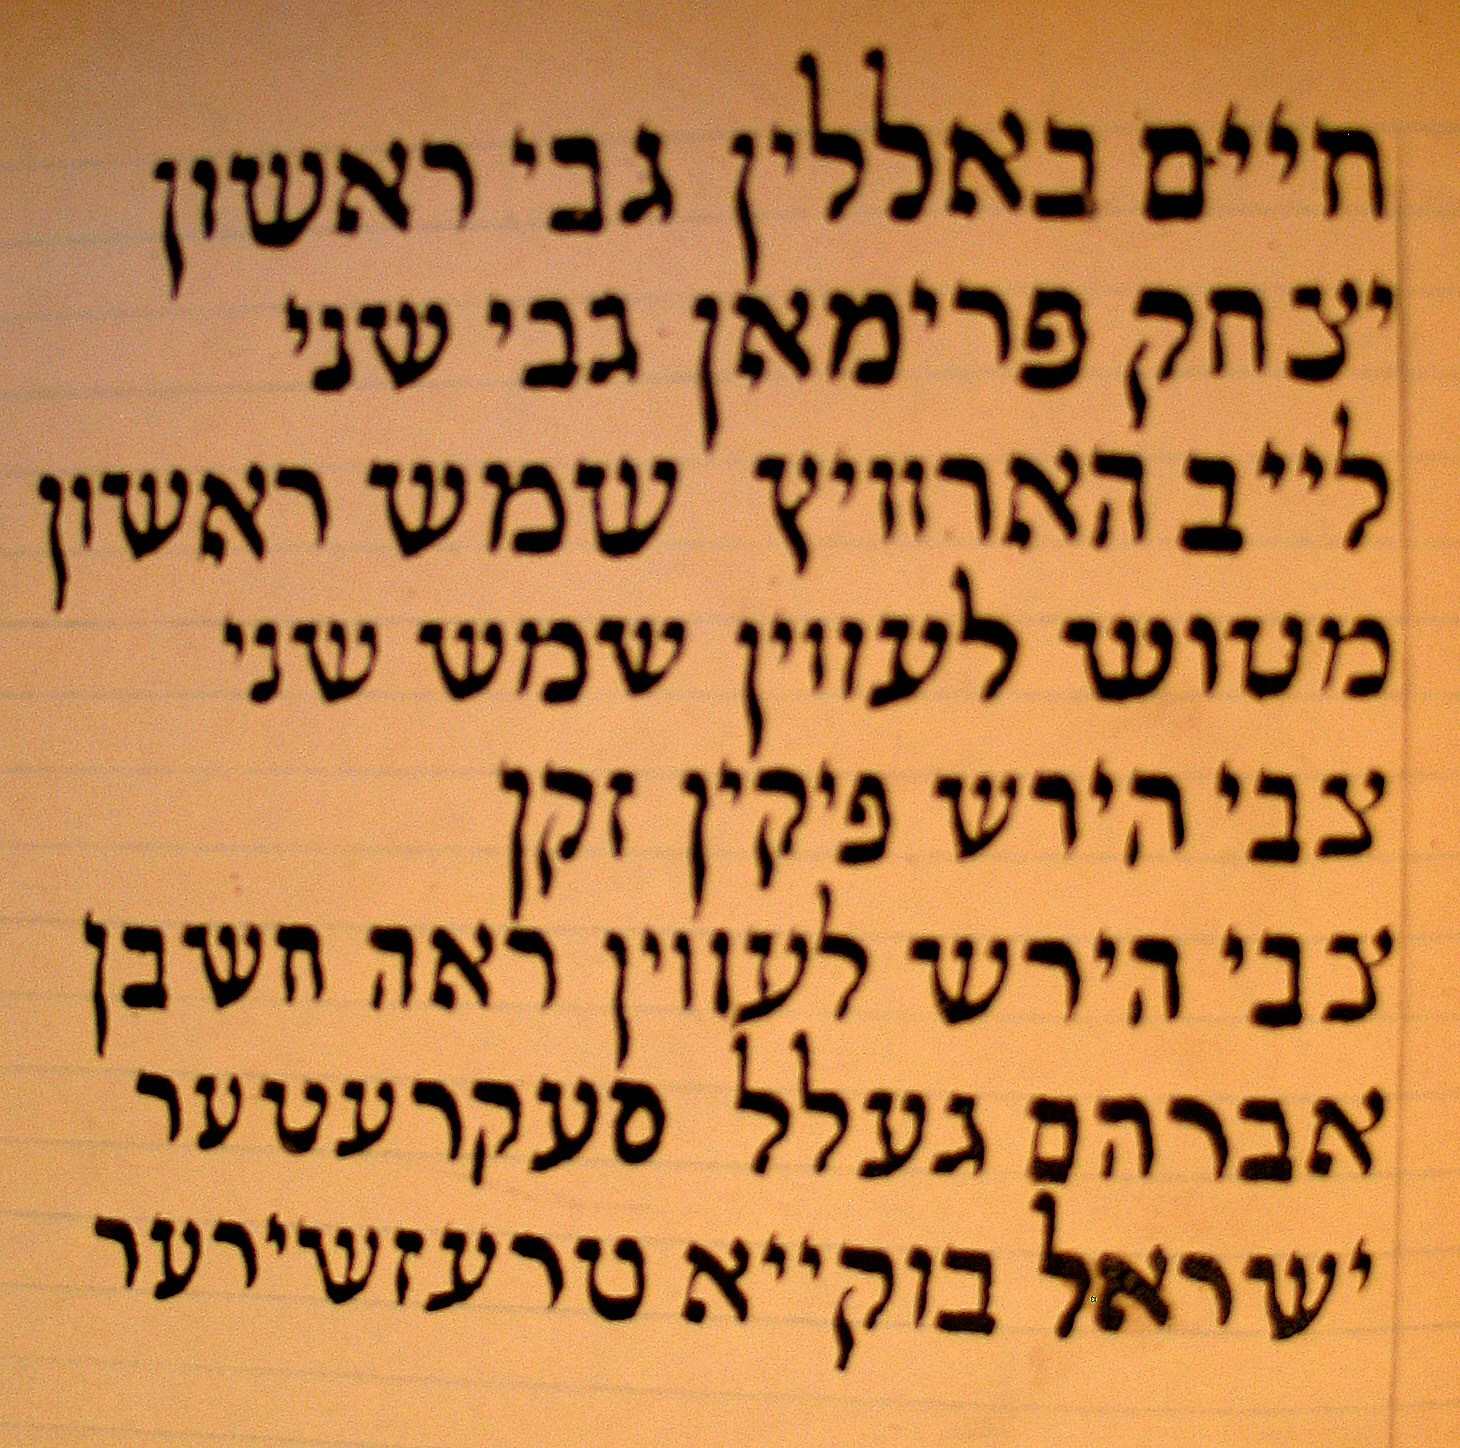 חיים באללין גבי ראשון
יצחק פרימאן גבי שני
לייב הארוויץ שמש ראשון
מטוש לעווין שמש שני
צבי הירש פיקין זקן
צבי הירש לעווין ראה חשבן
אברהם געלל סעקרעטער
ישראל בוקייא טרעזשירער